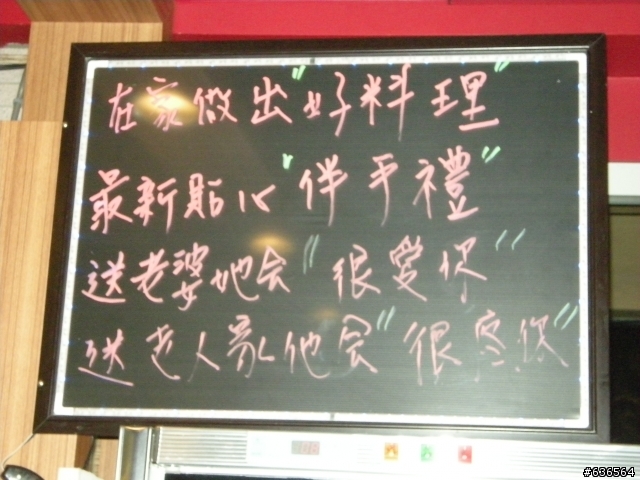 在家做出"好料理"
最新貼心"伴手禮"
送老婆她会"很愛你"
送老人家他会"很疼你"
#636564